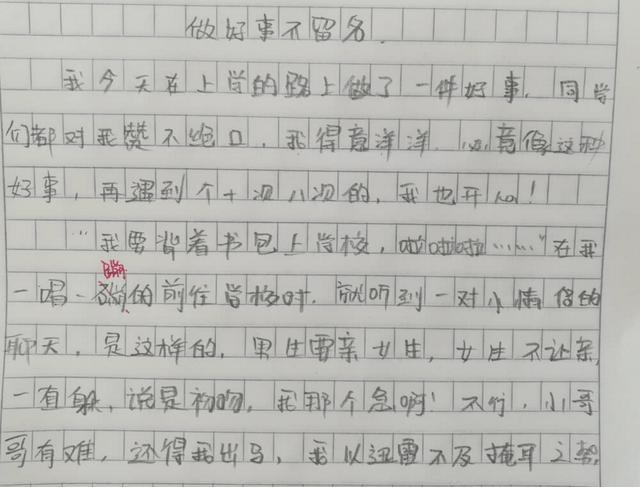 做好事不留名.
我今天在上学的路上做了一件好事. 同学
们都对我赞不绝口, 我得意洋洋. 必竟像这种
好事, 再遇到个十次八次的, 我也开心!
"我要背着书包上学校, 啦啦啦……"在我
蹦
一唱一的前往学校时. 就听到一对小情侣的
聊天, 是这样的, 男生要亲女生, 女生不让亲,
一直躲, 说是初吻, 我那个急啊! 不行, 小哥
哥有难, 还得我出马, 我以迅雷不及掩耳之势,